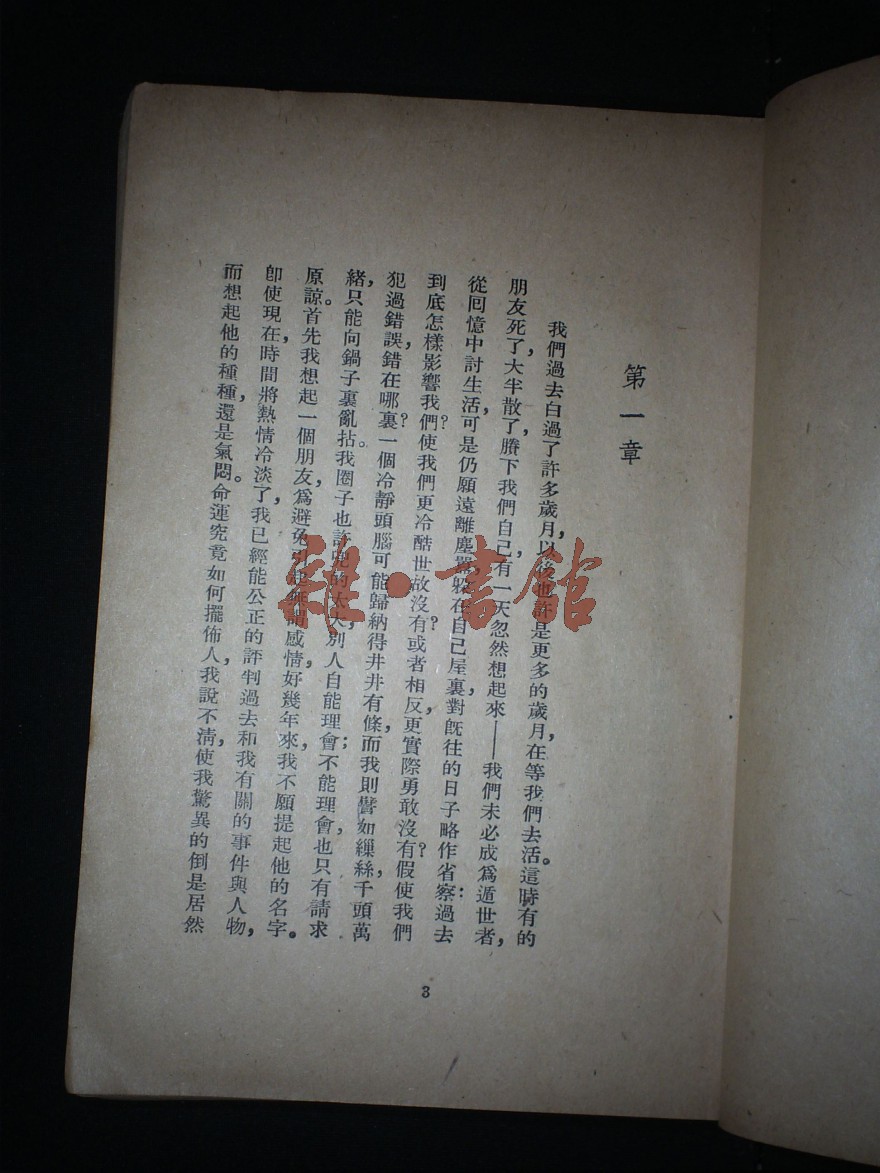 第一章
我們過去白過了許多歲月，以後也許是更多的歲月在等我們去活。這時有的
朋友死了，大半散了，賸下我們自己，有一天忽然想起來——我們未必成爲遁世者，
從囘憶中討生活，可是仍願遠離塵囂，躲在自己屋裏對旣往的日子略作省察：過去
到底怎樣影響我們？使我們更冷酷世故沒有？或者相反，更實際勇敢沒有？假使我們
犯過錯誤，錯在哪裏？一個冷靜頭腦可能歸納得井井有條，而我則譬如繅絲，千頭萬
緒，只能向鍋子裏亂拈。我圈子也許兜的太大，別人自能理會；不能理會，也只有請求
原諒。首先我想起一個朋友，爲避免引起無謂感情，好幾年來，我不願提起他的名字。
卽使現在時間將熱情冷淡了，我已經能公正的評判過去和我有關的事件與人物，
而想起他的種種，還是氣悶。命運究竟如何擺佈人，我說不淸，使我驚異的倒是居然
3
雜·書館